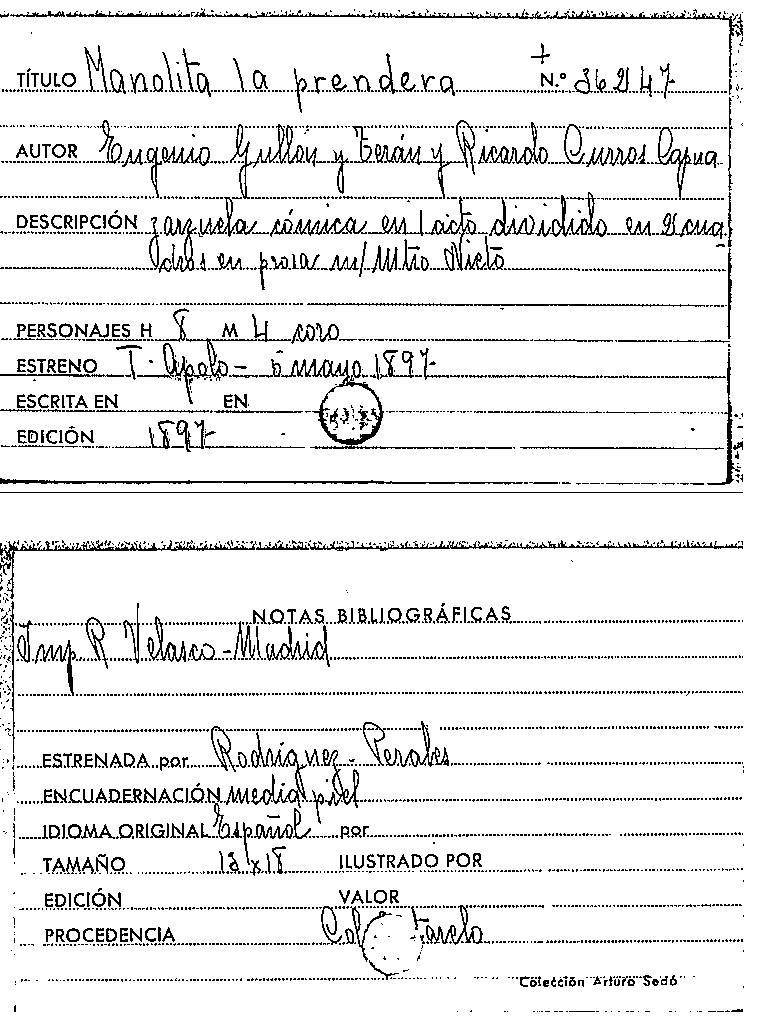 TÍTULO Manolita la prendera + N.º 36247
AUTOR Eugenio Gullón y Terán y Ricardo Curros Capua
DESCRIPCIÓN zarzuela cómica en 1 acto dividido en 2 cua
dros en prosa m/ Mtro Nieto
PERSONAJES H 8 M 4 coro
ESTRENO T. Apolo - 5 mayo 1897
ESCRITA EN EN
EDICIÓN 1897
NOTAS BIBLIOGRÁFICAS
Imp R Velasco - Madrid
ESTRENADA por Rodríguez - Perales
ENCUADERNACIÓN media piel
IDIOMA ORIGINAL Español por
TAMAÑO 13 x 18 ILUSTRADO POR
EDICIÓN VALOR
PROCEDENCIA
Colección Arturo Sedó